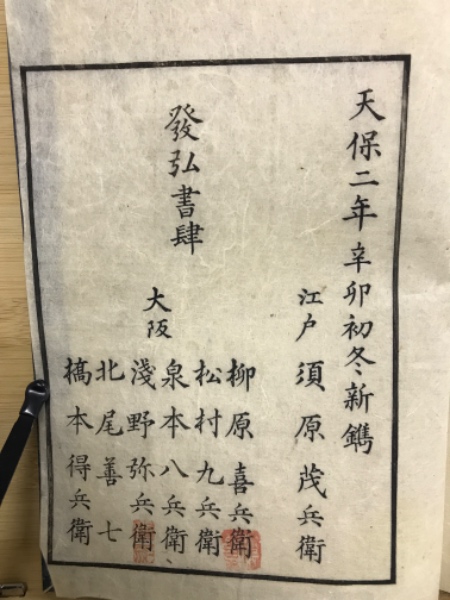 天保二年辛卯初冬新鐫
江戸 須原茂兵衛
發弘書肆
大阪
柳原喜兵衛
松村九兵衛
泉本八兵衛
淺野弥兵衛
北尾善七
槗本得兵衛